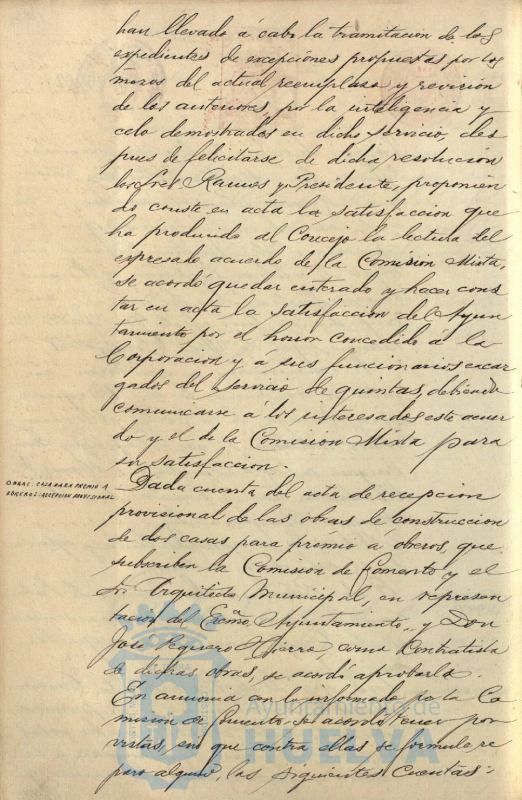 han llevado á cabo la tramitacion de los
expedientes de excepciones propuestas por los
mozos del actual reemplazo y revision
de los anteriores, por la inteligencia y
celo demostrados en dicho servicio, des
pues de felicitarse de dicha resolucion
los Sres Ramos y Presidente, proponien
do conste en acta la satisfaccion que
ha producido al Concejo la lectura del
expresado acuerdo de la Comision Mixta,
se acordó quedar enterado y hacer cons
tar en acta la satisfaccion del Ayun
tamiento por el honor concedido á la
Corporacion y á sus funcionarios encar
gados del servicio de quintas, debiendo
comunicarse á los interesados este acuer
do y el de la Comision Mixta para
su satisfaccion.
OBRAS: CASA PARA PREMIO A
OBREROS: RECEPCION PROVISIONAL
Dada cuenta del acta de recepcion
provisional de las obras de construccion
de dos casas para premio á obreros, que
subscriben la Comision de Fomento y el
Sr Arquitecto Municipal, en represen
tacion del Excmo Ayuntamiento, y Don
José Pequero Sierra, como Contratista
de dichas obras, se acordó aprobarla.
En armonia con lo informado por la Co
mision de Fomento se acordó tener por
vistas, sin que contra ellas se formule re
paro alguno, las siguientes cuentas:
Ayuntamiento de
HUELVA